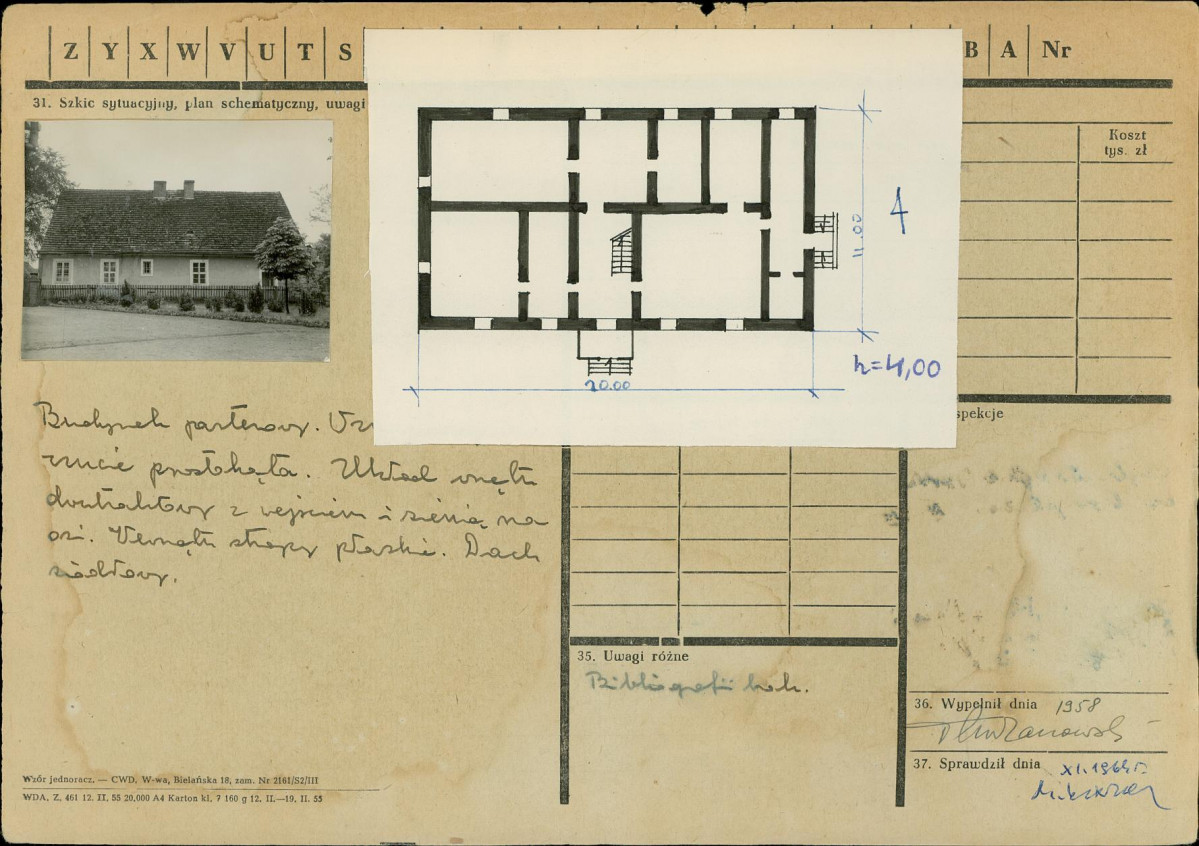 Z Y X W V U T S B A Nr
31. Szkic sytuacyjny, plan schematyczny, uwagi
Koszt
tys. zł
11.00
4
h=4,00
20.00
spekcje
Budynek parterowy.
rzucie prostokąta. Układ wnętrz
dwutraktowy z wejściem i sienią na
osi. Wewnątrz stropy płaskie. Dach
siodłowy.
35. Uwagi różne
Bibliografii brak.
36. Wypełnił dnia 1958
37. Sprawdził dnia
Wzór jednoracz. — CWD, W-wa, Bielańska 18, zam. Nr 2161/S2/III
WDA, Z. 461 12. II, 55 20,000 A4 Karton kl, 7 160 g 12, II.—19, II. 55